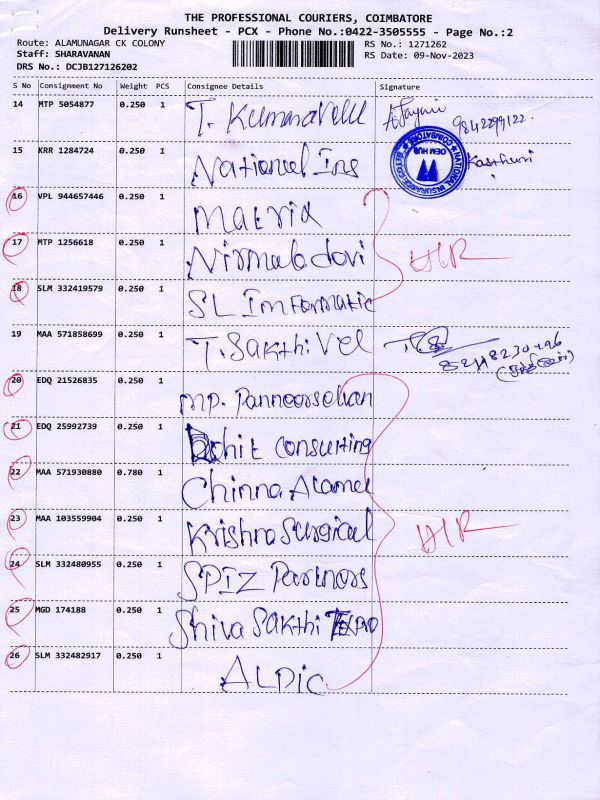 THE PROFESSIONAL COURIERS, COIMBATORE
Delivery Runsheet - PCX - Phone No.:0422-3505555 - Page No.:2
Route: ALAMUNAGAR CK COLONY RS No.: 1271262
Staff: SHARAVANAN RS Date: 09-Nov-2023
DRS No.: DCJB127126202
S No Consignment No Weight PCS Consignee Details Signature
14 MTP 5054877 0.250 1 T. Kumaravelu 9842299122
15 KRR 1284724 0.250 1 National Ins Kasthuri
NATIONAL INSURANCE OEM HUB COIMBATORE
16 VPL 944657446 0.250 1 Matrix
17 MTP 1256618 0.250 1 Nirmala devi HR
18 SLM 332419579 0.250 1 SL Informatic
19 MAA 571858699 0.250 1 T. Sakthi Vel
20 EDQ 21526835 0.250 1 MP. Panneerselvan
21 EDQ 25992739 0.250 1 Rohit Consulting
22 MAA 571930880 0.780 1 Chinna Alamel
23 MAA 103559904 0.250 1 Krishna Surgical HR
24 SLM 332480955 0.250 1 SPIZ Partners
25 MGD 174188 0.250 1 Shiva Sakthi
26 SLM 332482917 0.250 1 ALPIC